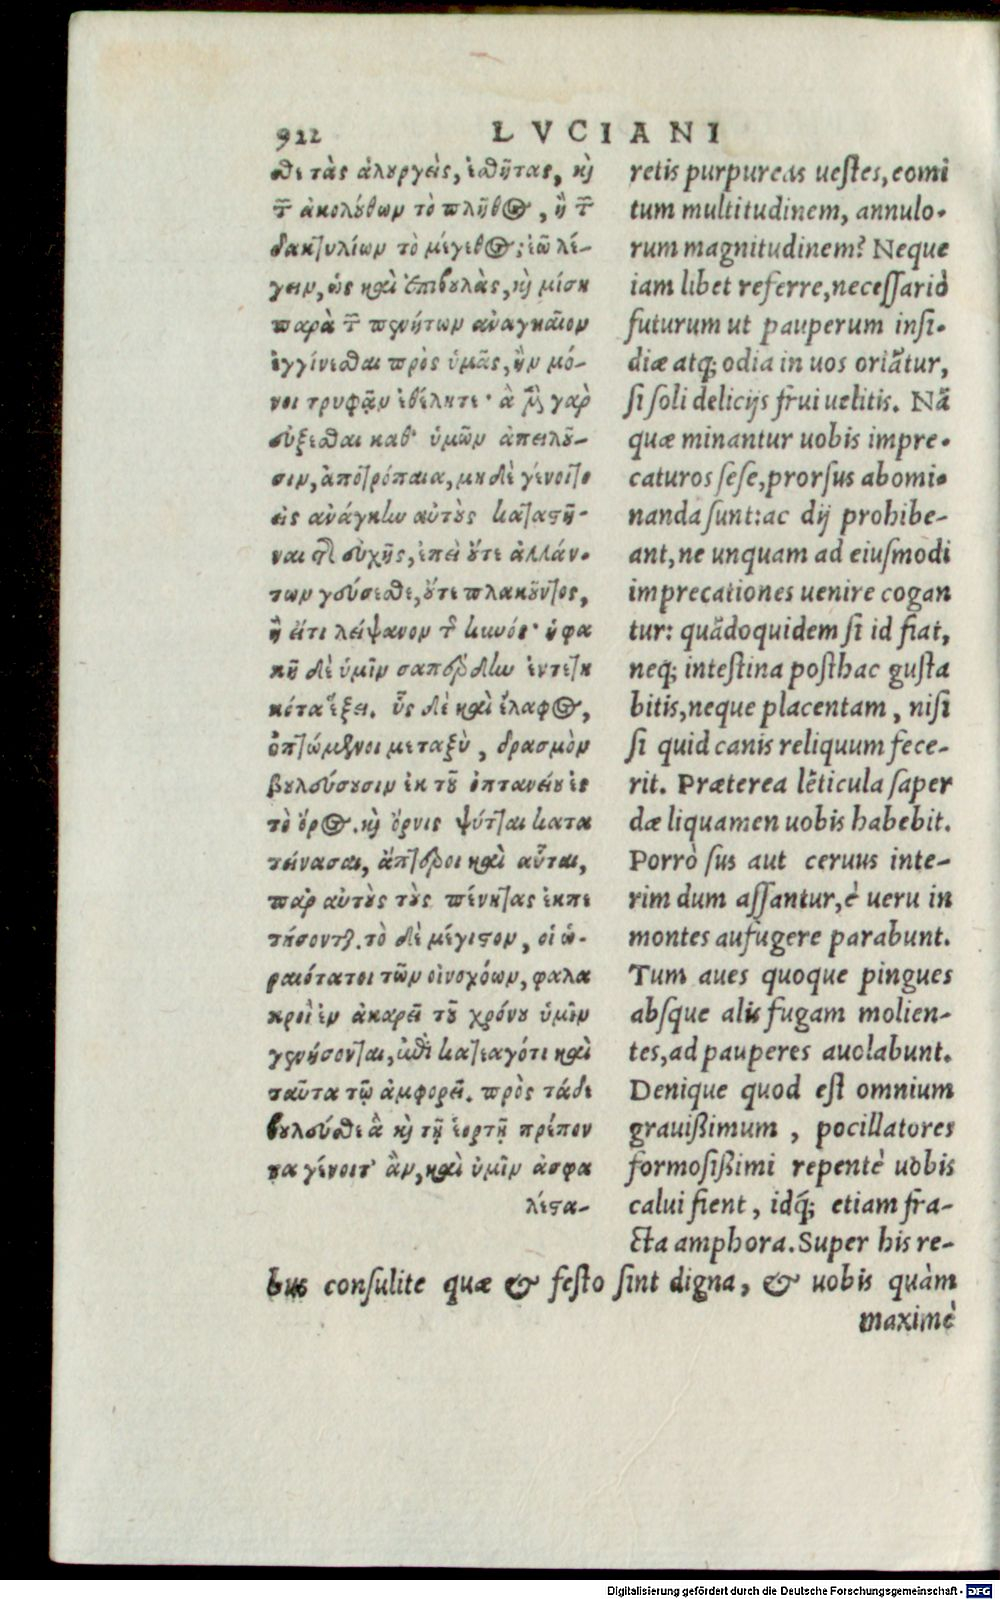 912 LVCIANI
σθε τὰς ἁλουργεῖς, ἐσθῆτας, καὶ
τῶν ἀκολούθων τὸ πλῆθος, ἢ τῶν
δακτυλίων τὸ μέγεθος; ἐῶ λέ-
γειν, ὡς καὶ ἐπιβουλὰς, καὶ μίση
παρὰ τῶν πενήτων ἀναγκαῖον
ἐγγίνεσθαι πρὸς ὑμᾶς, ἢν μό-
νοι τρυφᾷν ἐθέλητε· ἃ μὲν γὰρ
εὔξεσθαι καθ' ὑμῶν ἀπειλοῦ-
σιν, ἀποτρόπαια, μηδὲ γένοιτο
εἰς ἀνάγκην αὐτοὺς καταστῆ-
ναι τῆς εὐχῆς, ἐπεὶ οὔτε ἀλλάν-
των γεύσεσθε, οὔτε πλακοῦντος,
ἢ εἴτι λείψανον τοῦ κυνός· ἡ φα
κῆ δὲ ὑμῖν σαπέρδην ἐντετη
κότα ἕξει. ὗς δὲ καὶ ἔλαφος,
ὀπτώμενοι μεταξὺ, δρασμὸν
βουλεύσουσιν ἐκ τοῦ ὀπτανείου ἐς
τὸ ὄρος. καὶ ὄρνις ψύτται κατα
τείνασαι, ἄπτεροι καὶ αὗται,
παρ αὐτοὺς τοὺς πένητας ἐκπε
τήσονται. τὸ δὲ μέγιστον, οἱ ὡ-
ραιότατοι τῶν οἰνοχόων, φαλα
κροὶ ἐν ἀκαρεῖ τοῦ χρόνου ὑμῖν
γενήσονται, ἐπὶ κατεαγότι καὶ
ταῦτα τῷ ἀμφορεῖ. πρὸς τάδε
βουλεύσθε ἃ καὶ τῇ ἑορτῇ πρέπον
τα γένοιτ' ἂν, καὶ ὑμῖν ἀσφα
λέστα-
retis purpureas uestes, comi
tum multitudinem, annulo-
rum magnitudinem? Neque
iam libet referre, necessariò
futurum ut pauperum insi-
diæ atq; odia in uos oriãtur,
si soli delicijs frui uelitis. Nã
quæ minantur uobis impre-
caturos sese, prorsus abomi-
nanda sunt: ac dij prohibe-
ant, ne unquam ad eiusmodi
imprecationes uenire cogan
tur: quãdoquidem si id fiat,
neq; intestina posthac gusta
bitis, neque placentam, nisi
si quid canis reliquum fece-
rit. Præterea lẽticula saper
dæ liquamen uobis habebit.
Porrò sus aut ceruus inte-
rim dum assantur, è ueru in
montes aufugere parabunt.
Tum aues quoque pingues
absque alis fugam molien-
tes, ad pauperes auolabunt.
Denique quod est omnium
grauißimum, pocillatores
formosißimi repentè uobis
calui fient, idq́; etiam fra-
cta amphora. Super his re-
bus consulite quæ & festo sint digna, & uobis quàm
maximè
Digitalisierung gefördert durch die Deutsche Forschungsgemeinschaft - DFG